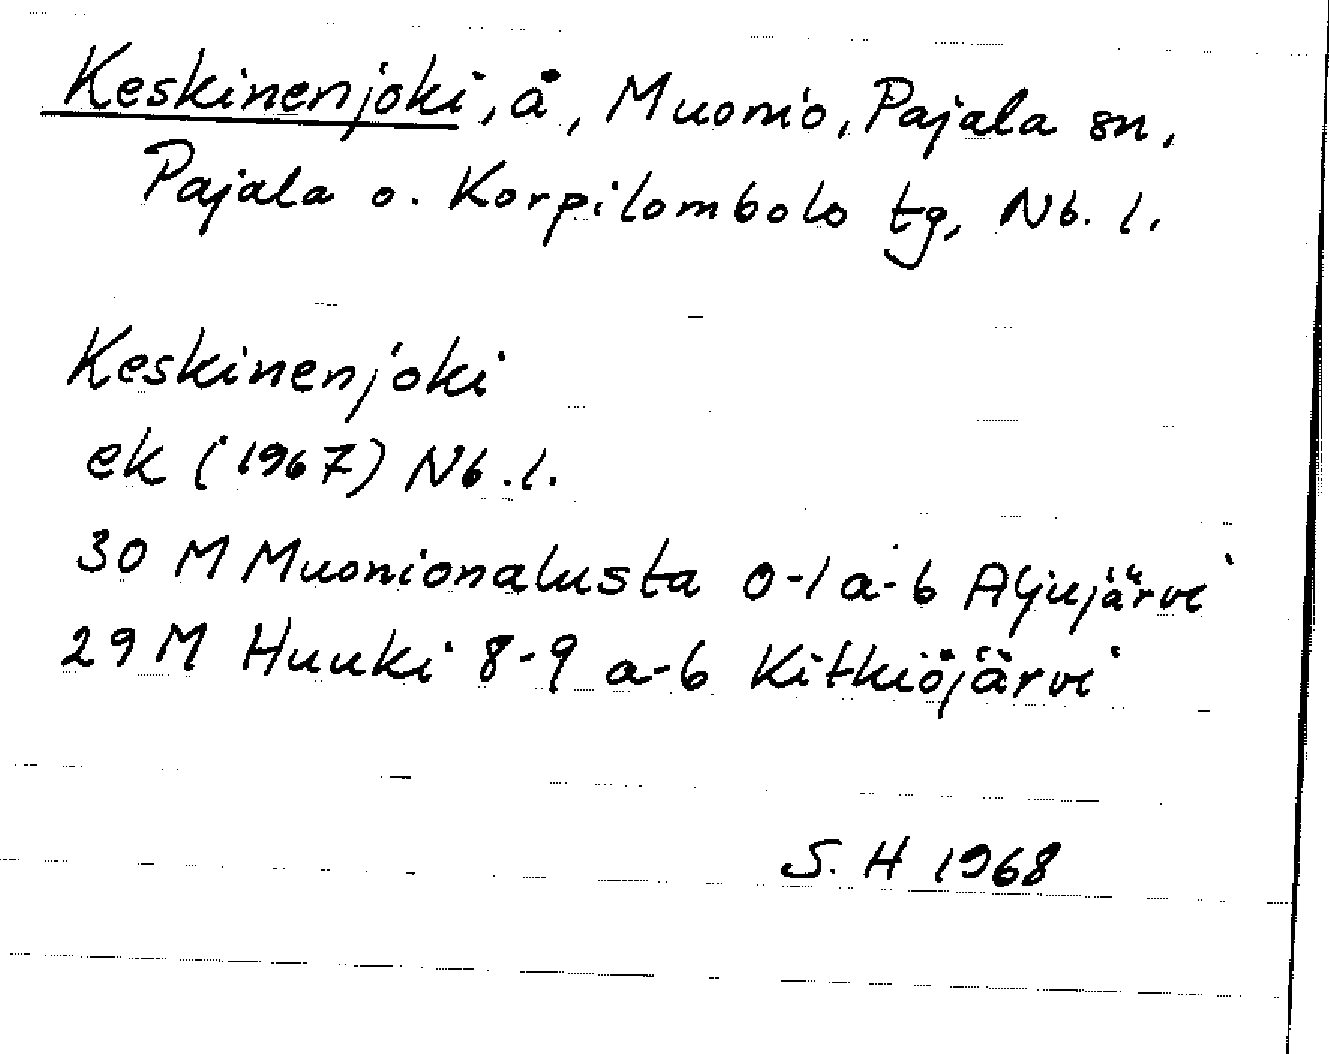 Keskinenjoki, å, Muonio, Pajala sn,
Pajala o. Korpilombolo tg, Nb. l.
Keskinenjoki
ek (1967) Nb. l.
30 M Muonionalusta 0-1 a-b Aljujärvi
29 M Huuki 8-9 a-b Kitkiöjärvi
S. H 1968